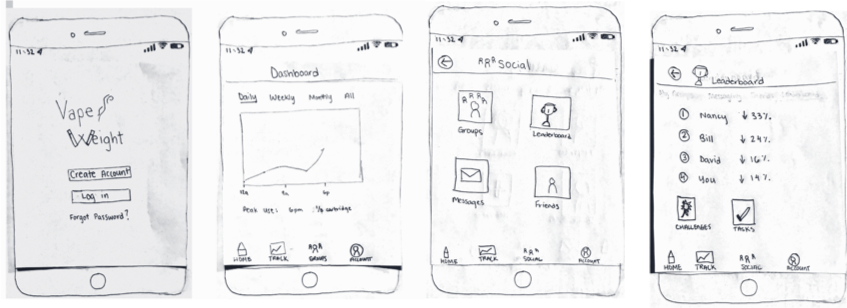 11:52
Vape
Weight
Create Account
Log in
Forgot Password?
11:52
Dashboard
Daily Weekly Monthly All
12a
6p
Peak use: 6pm
cartridge
HOME TRACK GROUPS ACCOUNT
11:52
Social
Groups Leaderboard
Messages Friends
HOME TRACK SOCIAL Account
11:52
Leaderboard
1 Nancy ↓ 33%
2 Bill ↓ 24%
3 David ↓ 16%
4 You ↓ 14%
CHALLENGES TASKS
HOME TRACK SOCIAL Account